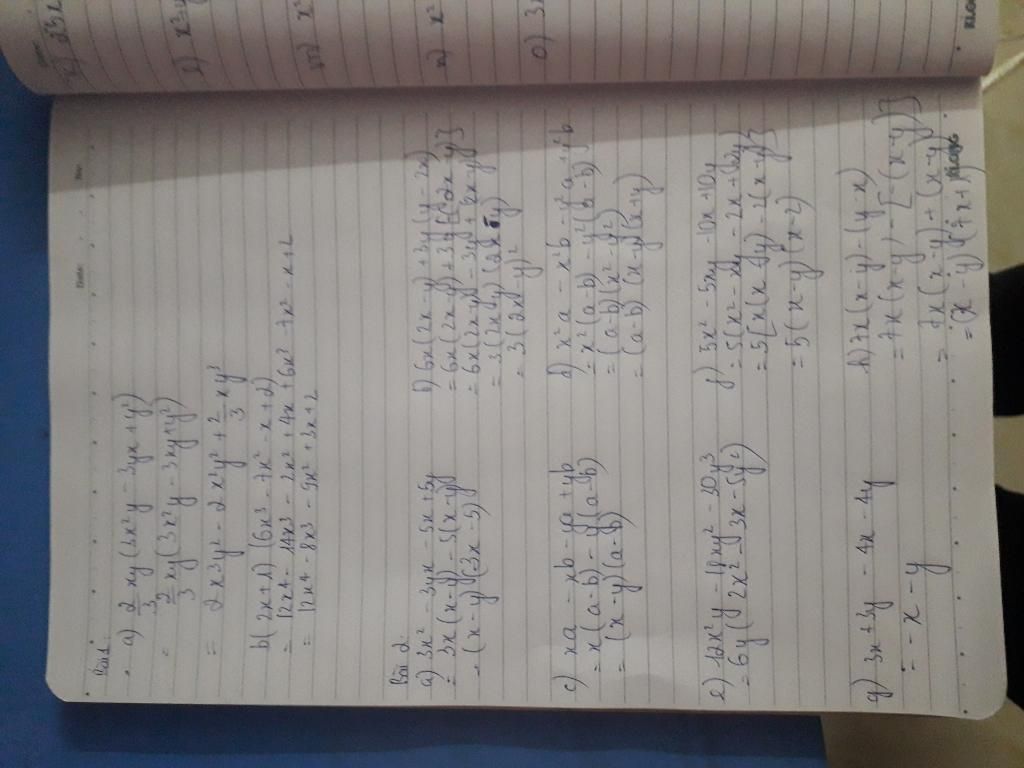 Bài 1:
a) 2/3 xy(3x²y - 3yx + y²)
= 2/3 xy(3x²y - 3xy + y²)
= 2x³y² - 2x²y² + 2/3 xy³
b) (2x+1)(6x³ - 7x² - x + 2)
= 12x⁴ - 14x³ - 2x² + 4x + 6x³ - 7x² - x + 2
= 12x⁴ - 8x³ - 9x² + 3x + 2
Bài 2:
a) 3x² - 3yx - 5x + 5y
= 3x(x-y) - 5(x-y)
= (x-y)(3x-5)
b) 6x(2x-y) + 3y(y-2x)
= 6x(2x-y) + 3y[-(2x-y)]
= 6x(2x-y) - 3y
= 3(2x-y)(2x-y)
= 3(2x-y)²
c) xa - xb - ya + yb
= x(a-b) - y(a-b)
= (x-y)(a-b)
d) x²a - x²b - y²a + y²b
= x²(a-b) - y²(a-b)
= (a-b)(x²-y²)
= (a-b)(x-y)(x+y)
e) 12x²y - 18xy² - 30y³
= 6y(2x² - y3x - 5y²)
f) 5x² - 5xy - 10x + 10y
= 5(x² - xy - 2x + 2y)
= 5[x(x-y) - 2(x-y)]
= 5(x-y)(x-2)
g) 3x + 3y - 4x - 4y
= -x - y
h) 7x(x-y) - (y-x)
= 7x(x-y) - [-(x-y)]
= 7x(x-y) + (x-y)
= (x-y)(7x+1)
Date:
No:
KLONG
x²
n) x²
o) 3x